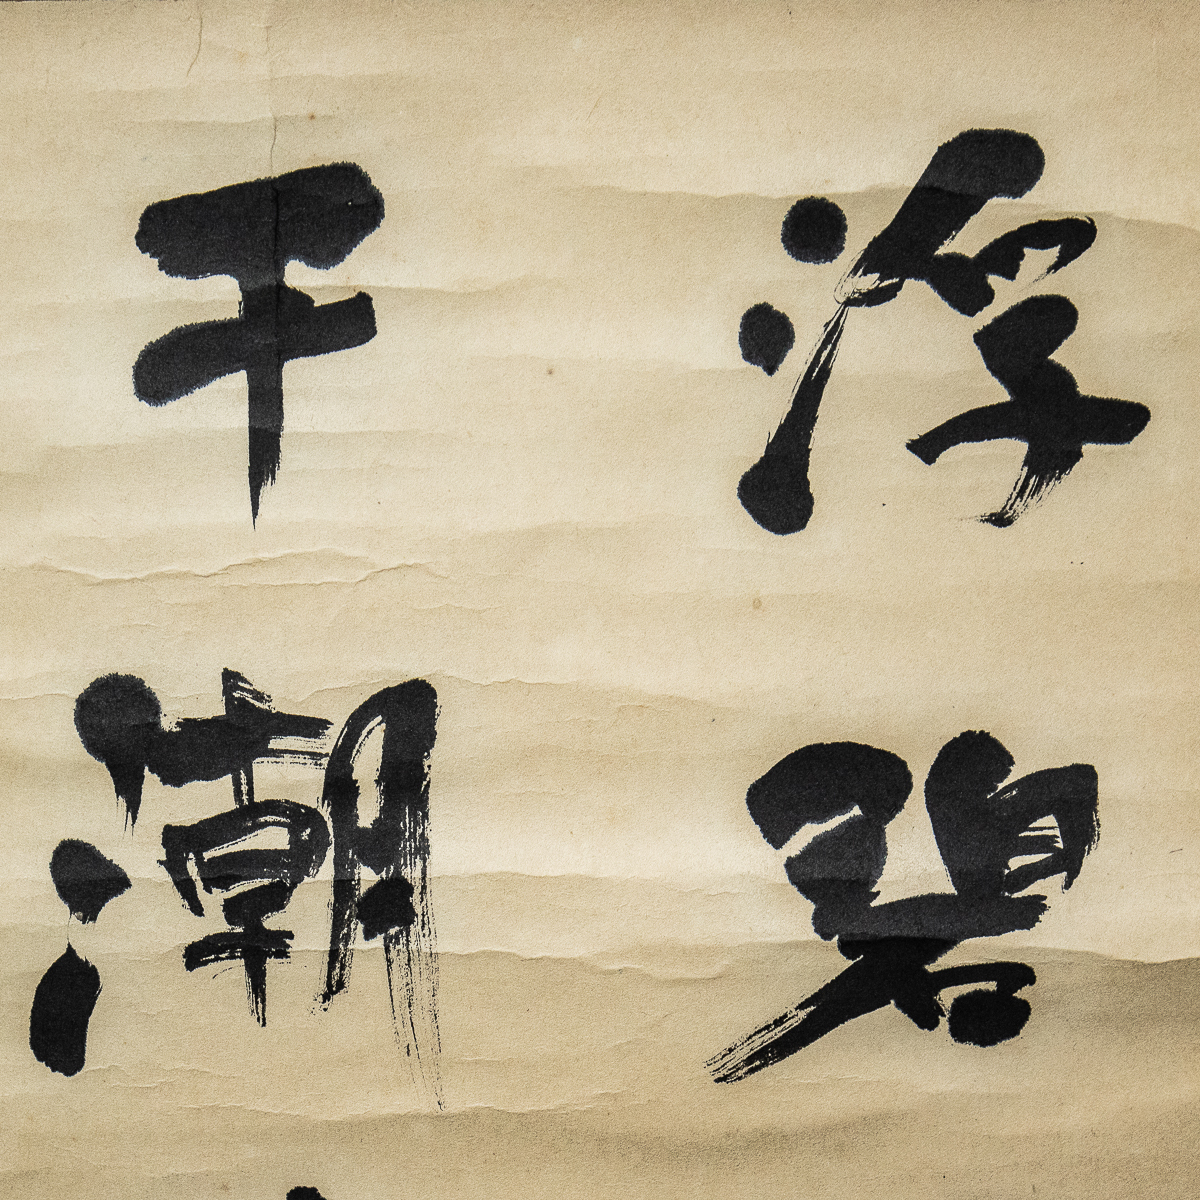 浮碧
干潮